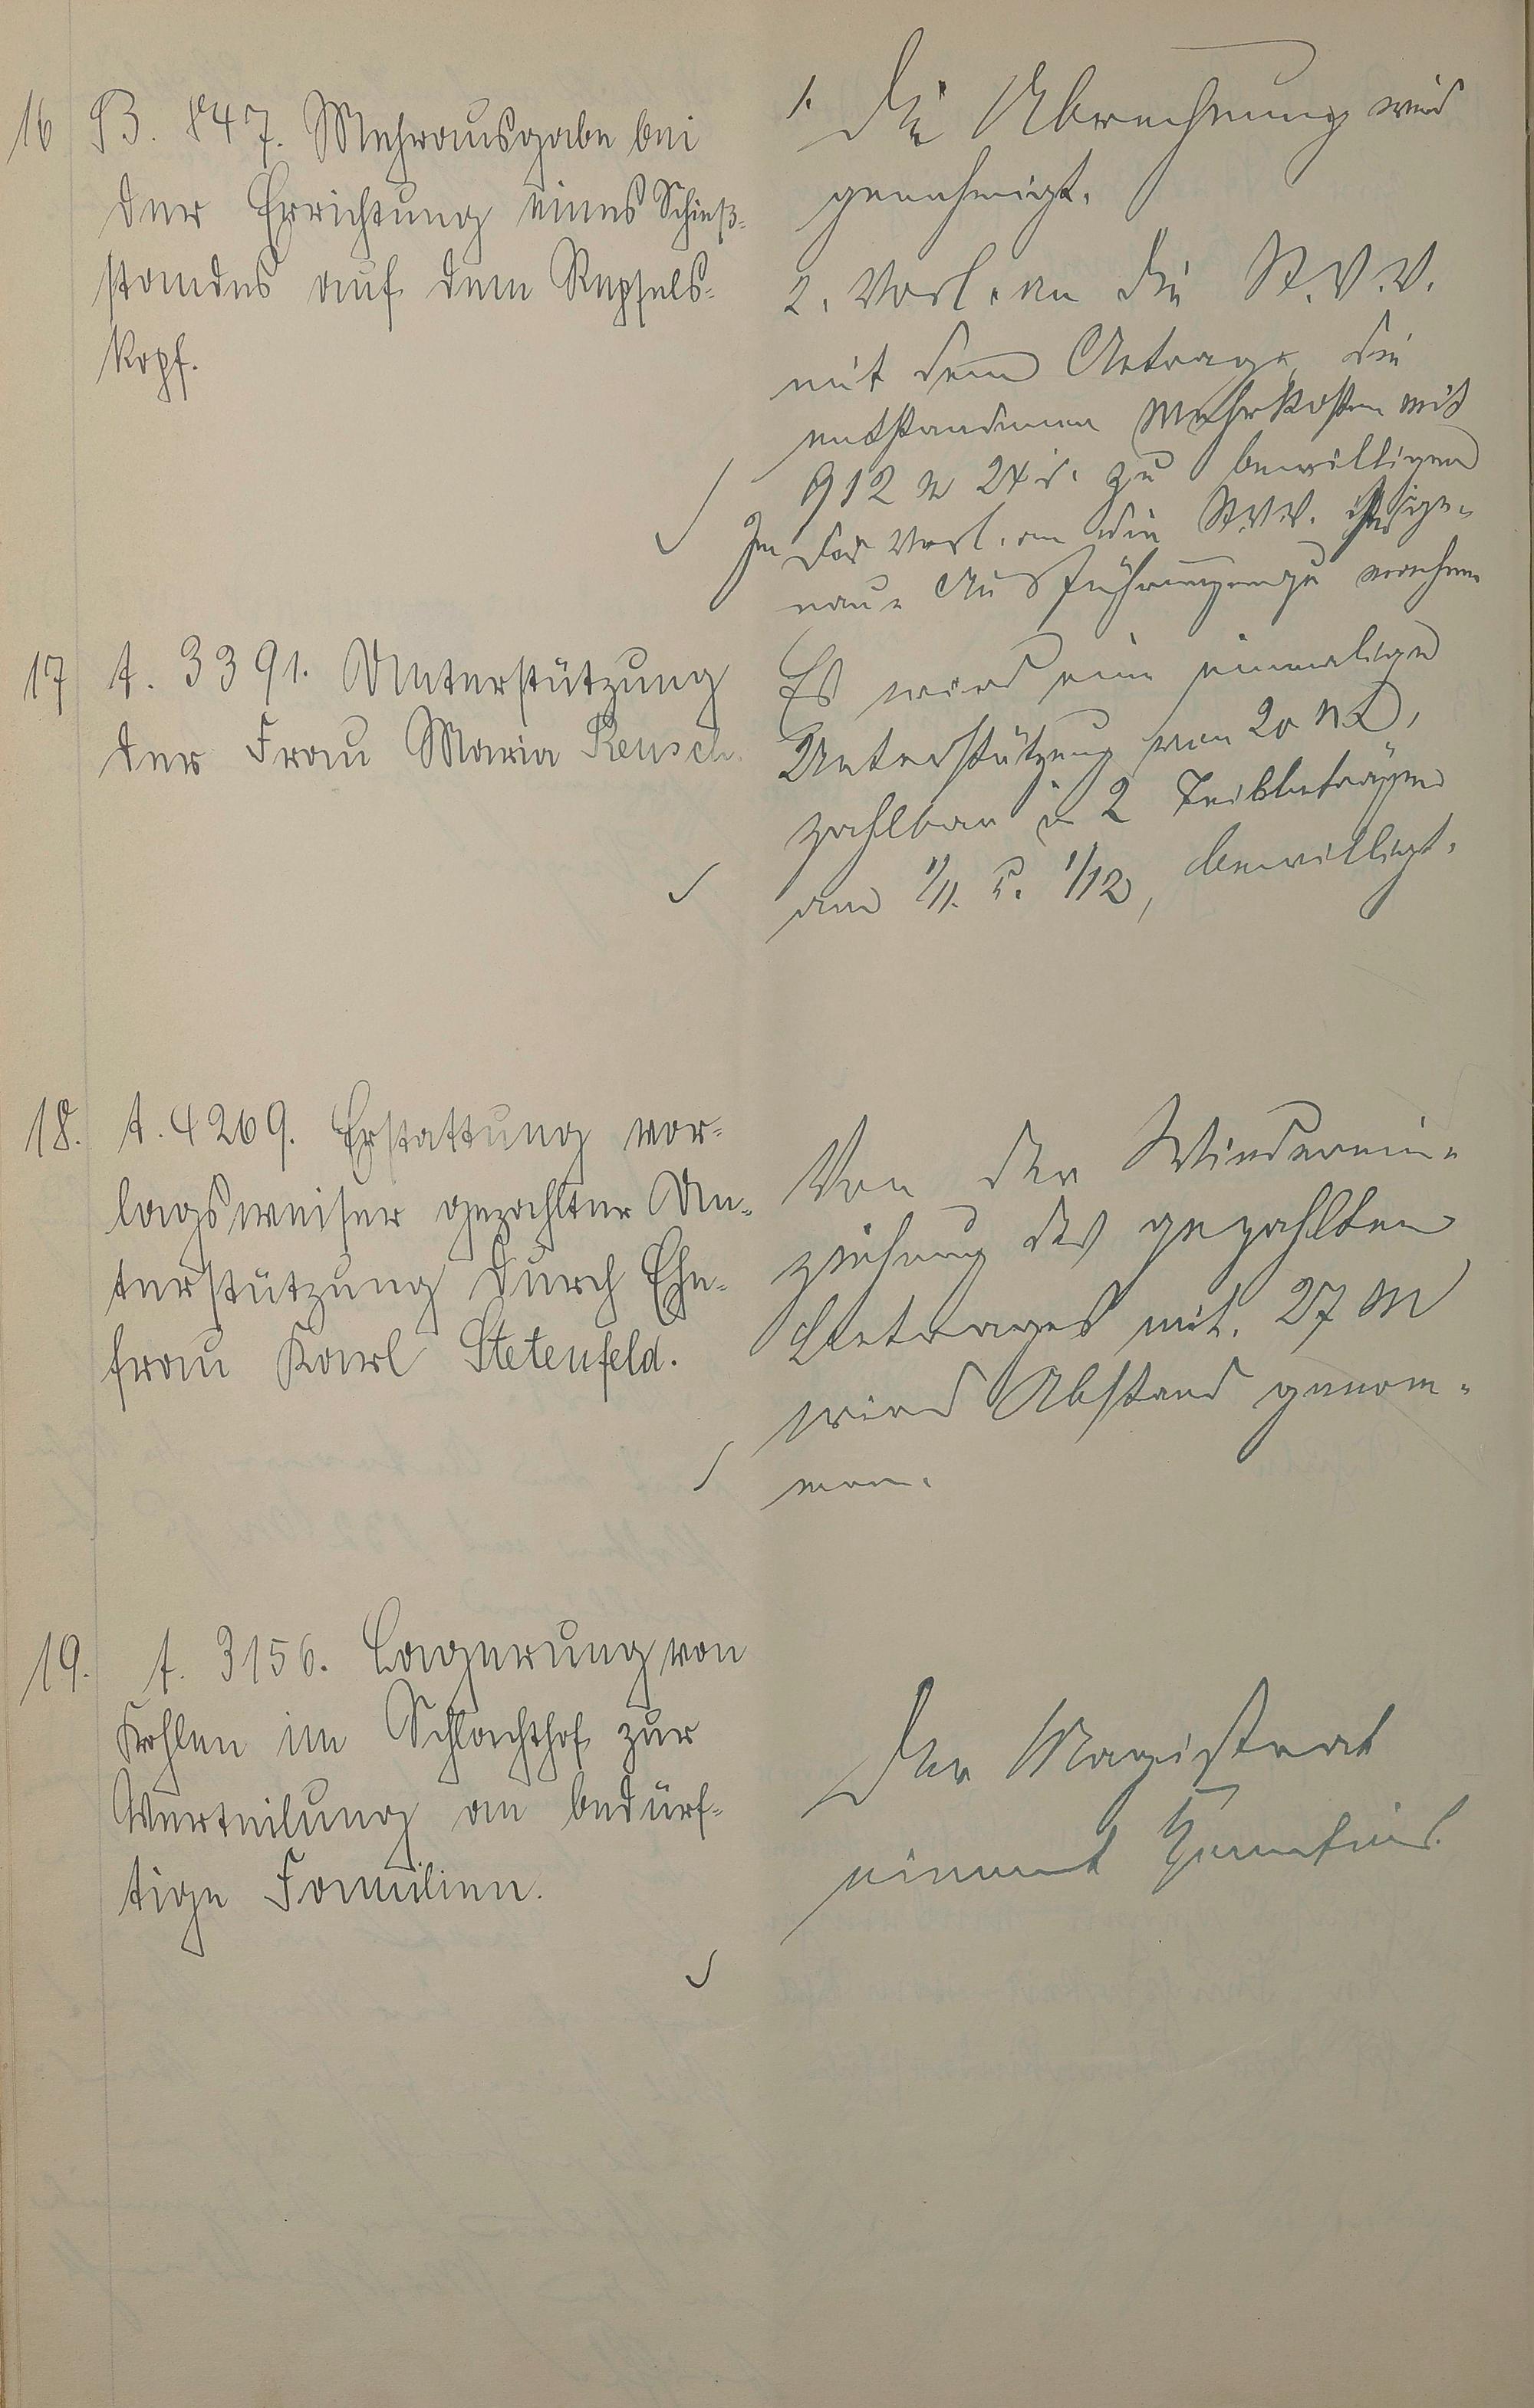 16 B. 847. Mehrausgabe bei
der Errichtung eines Schieß-
standes auf dem Repsels-
kopf.
1. Die Abrechnung wird
genehmigt.
2. Vorl. an die St.V.V.
mit dem Antrage, die
entstandenen Mehrkosten mit
912 M 24 d. zu bewilligen
In der Vorl. an die St.V.V. sind ge-
naue Ausführungen zu machen
17 A. 3391. Unterstützung
der Frau Maria Reusch.
Es wird eine einmalige
Unterstützung von 20 M,
zahlbar in 2 Teilbeträgen
am 1/11. u. 1/12, bewilligt.
18. A. 4269. Erstattung vor-
lagsweiser gezahlter Un-
terstützung durch Ehe-
frau Karl Stetenfeld.
Von der Wiederein-
ziehung des gezahlten
Betrages mit 27 M
wird Abstand genom-
men.
19. A. 3156. Lagerung von
Kohlen im Schlachthof zur
Verteilung an bedürf-
tige Familien.
Der Magistrat
nimmt Kenntnis.